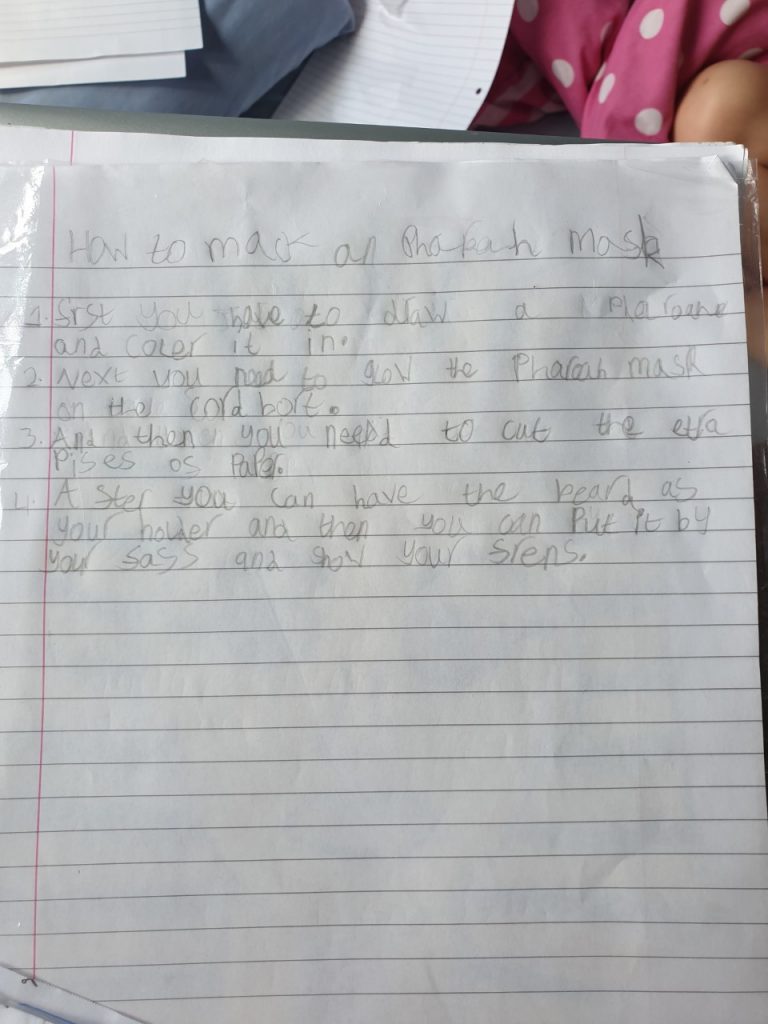 How to mack an Pharaoh mask
1. first you have to draw a Pharoane
and coler it in.
2. Next you need to glow the Pharoah mask
on the cord bort.
3. And then you need to cut the etra
Pises os Paper.
4. A ster you can have the beard as
your holder and then you can Put it by
your sass and show your srens.